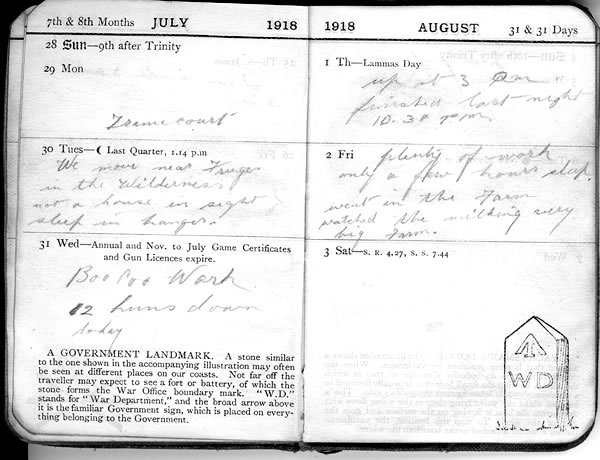 7th & 8th Months JULY 1918
28 Sun—9th after Trinity
29 Mon
Tramecourt
30 Tues—☾ Last Quarter, 1.14 p.m
We move near Fruges
in the Wilderness
not a house in sight
sleep in hangar.
31 Wed—Annual and Nov. to July Game Certificates
and Gun Licences expire.
Boo Coo Work
12 huns down
today
A GOVERNMENT LANDMARK. A stone similar
to the one shown in the accompanying illustration may often
be seen at different places on our coasts. Not far off the
traveller may expect to see a fort or battery, of which the
stone forms the War Office boundary mark. "W.D."
stands for "War Department," and the broad arrow above
it is the familiar Government sign, which is placed on every-
thing belonging to the Government.
1918 AUGUST 31 & 31 Days
1 Th—Lammas Day
up at 3 am
finished last night
10.30 pm
2 Fri plenty of work
only a few hours sleep
went in the Farm
watched the milking very
big Farm.
3 Sat—S. R. 4.27, S. S. 7.44
WD